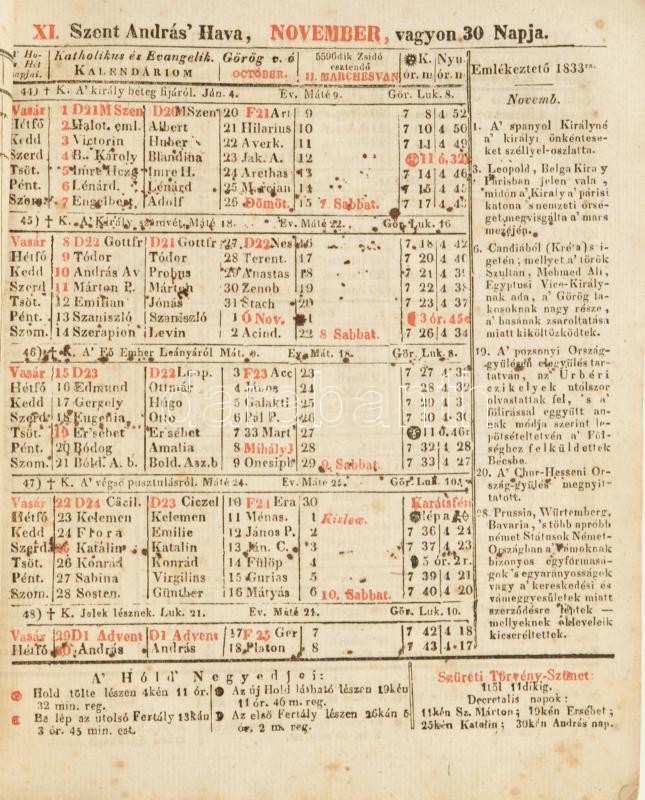 XI. Szent András' Hava, NOVEMBER, vagyon 30 Napja.
Katholikus és Evangelik. KALENDÁRIOM
Görög v. ó OCTÓBER.
559ódik Zsidó esztendő II. MARCHESVAN
K. ór. m. Nyu. ór. m.
44) † K. A' király beteg fijáról. Ján. 4. Ev. Máté 9. Gör. Luk. 8.
Vasár 1 D21 M Szen D20 MSzen 20 F21 Art 9 7 8 4 52
Hétfő 2 Halot. eml. Albert 21 Hilarius 10 7 10 4 50
Kedd 3 Victorin Huber 22 Averk. 11 7 11 4 49
Szerd 4 B. Károly Blandina 23 Jak. A. 12 11 ó. 32
Tsöt. 5 Imre Herz Imre H. 24 Arethas 13 7 14 4 46
Pént. 6 Lénárd. Lénárd 25 Marcian 14 7 15 4 45
Szom. 7 Engelbert Adolf 26 Dömöt. 15 7. Sabbat. 7 17 4 43
45) † K. A' Király számvét. Máté 18. Ev. Máté 22. Gör. Luk. 16
Vasár 8 D22 Gottfr D21 Gottfr 27 D22 Nes 16 7 18 4 42
Hétfő 9 Tódor Tódor 28 Terent. 17 7 20 4 40
Kedd 10 András Av Probus 29 Anastas 18 7 21 4 39
Szerd 11 Márton P. Márton 30 Zenob 19 7 22 4 38
Tsöt. 12 Emilian Jónás 31 Stach 20 7 23 4 37
Pént. 13 Szaniszló Szaniszló 1 Ó Nov. 21 3 ór. 45
Szom. 14 Szerapion Levin 2 Acind. 22 8 Sabbat. 7 26 4 34
46) † K. A' Fő Ember Leányáról Mát. 9. Ev. Mát. 18. Gör. Luk. 8.
Vasár 15 D23 D22 Leop. 3 F23 Acc 23 7 27 4 33
Hétfő 16 Edmund Ottmár 4 János 24 7 28 4 32
Kedd 17 Gergely Húgo 5 Galakti 25 7 29 4 31
Szerd 18 Eugenia Otto 6 Pál P. 26 7 30 4 30
Tsöt. 19 Er'sébet Er'sébet 7 33 Mart 27 11 ó. 46
Pént. 20 Bódog Amalia 8 Mihály J 28 7 32 4 28
Szom. 21 Bóld. A. b. Bold. Asz.b 9 Onesiph 29 9. Sabbat. 7 33 4 27
47) † K. A' végső pusztulásról. Máté 24. Ev. Máté 25. Gör. Luk. 10.
Vasár 22 D24 Cäcil. D23 Ciczel 10 F24 Era 30 Karátsfén
Hétfő 23 Kelemen Kelemen 11 Ménas. 1 Kislew. lép a
Kedd 24 Flora Emilie 12 János P. 2 7 36 4 24
Szerd 25 Katálin Katalin 13 Ján. C. 3 7 37 4 23
Tsöt. 26 Konrád Konrád 14 Fülöp 4 5 ór. 2r.
Pént. 27 Sabina Virgilius 15 Gurias 5 7 39 4 21
Szom. 28 Sosten. Günther 16 Mátyás 6 10. Sabbat. 7 40 4 20
48) † K. Jelek lésznek. Luk. 21. Ev. Máté 21. Gör. Luk. 10.
Vasár 29 D1 Advent D1 Advent 17 F 25 Ger 7 7 42 4 18
Hétfő 30 András András 18 Platon 8 7 43 4 17
Emlékeztető 1833ra.
Novemb.
1. A' spanyol Királyné
a' királyi önkéntese-
ket széllyel-oszlatta.
3. Leopold, Belga Király
Párisban jelen vala,
midőn a' Király a' párisi
katona 's nemzeti őrsé-
get megvisgálta a' mars
mezején.
6. Candiából (Kréta) szi-
getén; mellyet a' török
Szultán, Mehmed Ali,
Egyptusi Vice-Király-
nak ada, a' Görög la-
kosoknak nagy része,
a' basának zsaroltatása
miatt kiköltözködtek.
19. A' pozsonyi Ország-
gyülésen elegyülés tar-
tatván, az Úrbéri
czikelyek utólszor
olvastattak fel, 's a'
fölirással eggyütt an-
nak módja szerint le-
pötsételtetvén a' Föl-
séghez felküldettek
Bécsbe.
20. A' Chur-Hesseni Or-
szág-gyülés megnyit-
tatott.
28. Prussia, Würtemberg,
Bavaria, 's több apróbb
német Státusok Német-
Országban a' Vámoknak
bizonyos egyformasá-
gok 's egyarányosságok
vagy a' kereskedési és
vámeggyesületek miatt
szerződésre léptek —
mellyeknek okleveleik
kicseréltettek.
A' Hóld' Negyedjei:
Hold tölte lészen 4kén 11 ór.
32 min. reg.
Be lép az utolsó Fertály 13kán
3 ór. 45 min. est.
Az új Hold látható lészen 19kén
11 ór. 46 m. reg.
Az első Fertály lészen 26kán 5
ór. 2 m. reg.
Szüreti Törvény-Szünet:
1től 11dikig.
Decretalis napok:
11kén Sz. Márton; 19kén Ersébet;
25kén Katalin; 30kén András nap.
darabanth